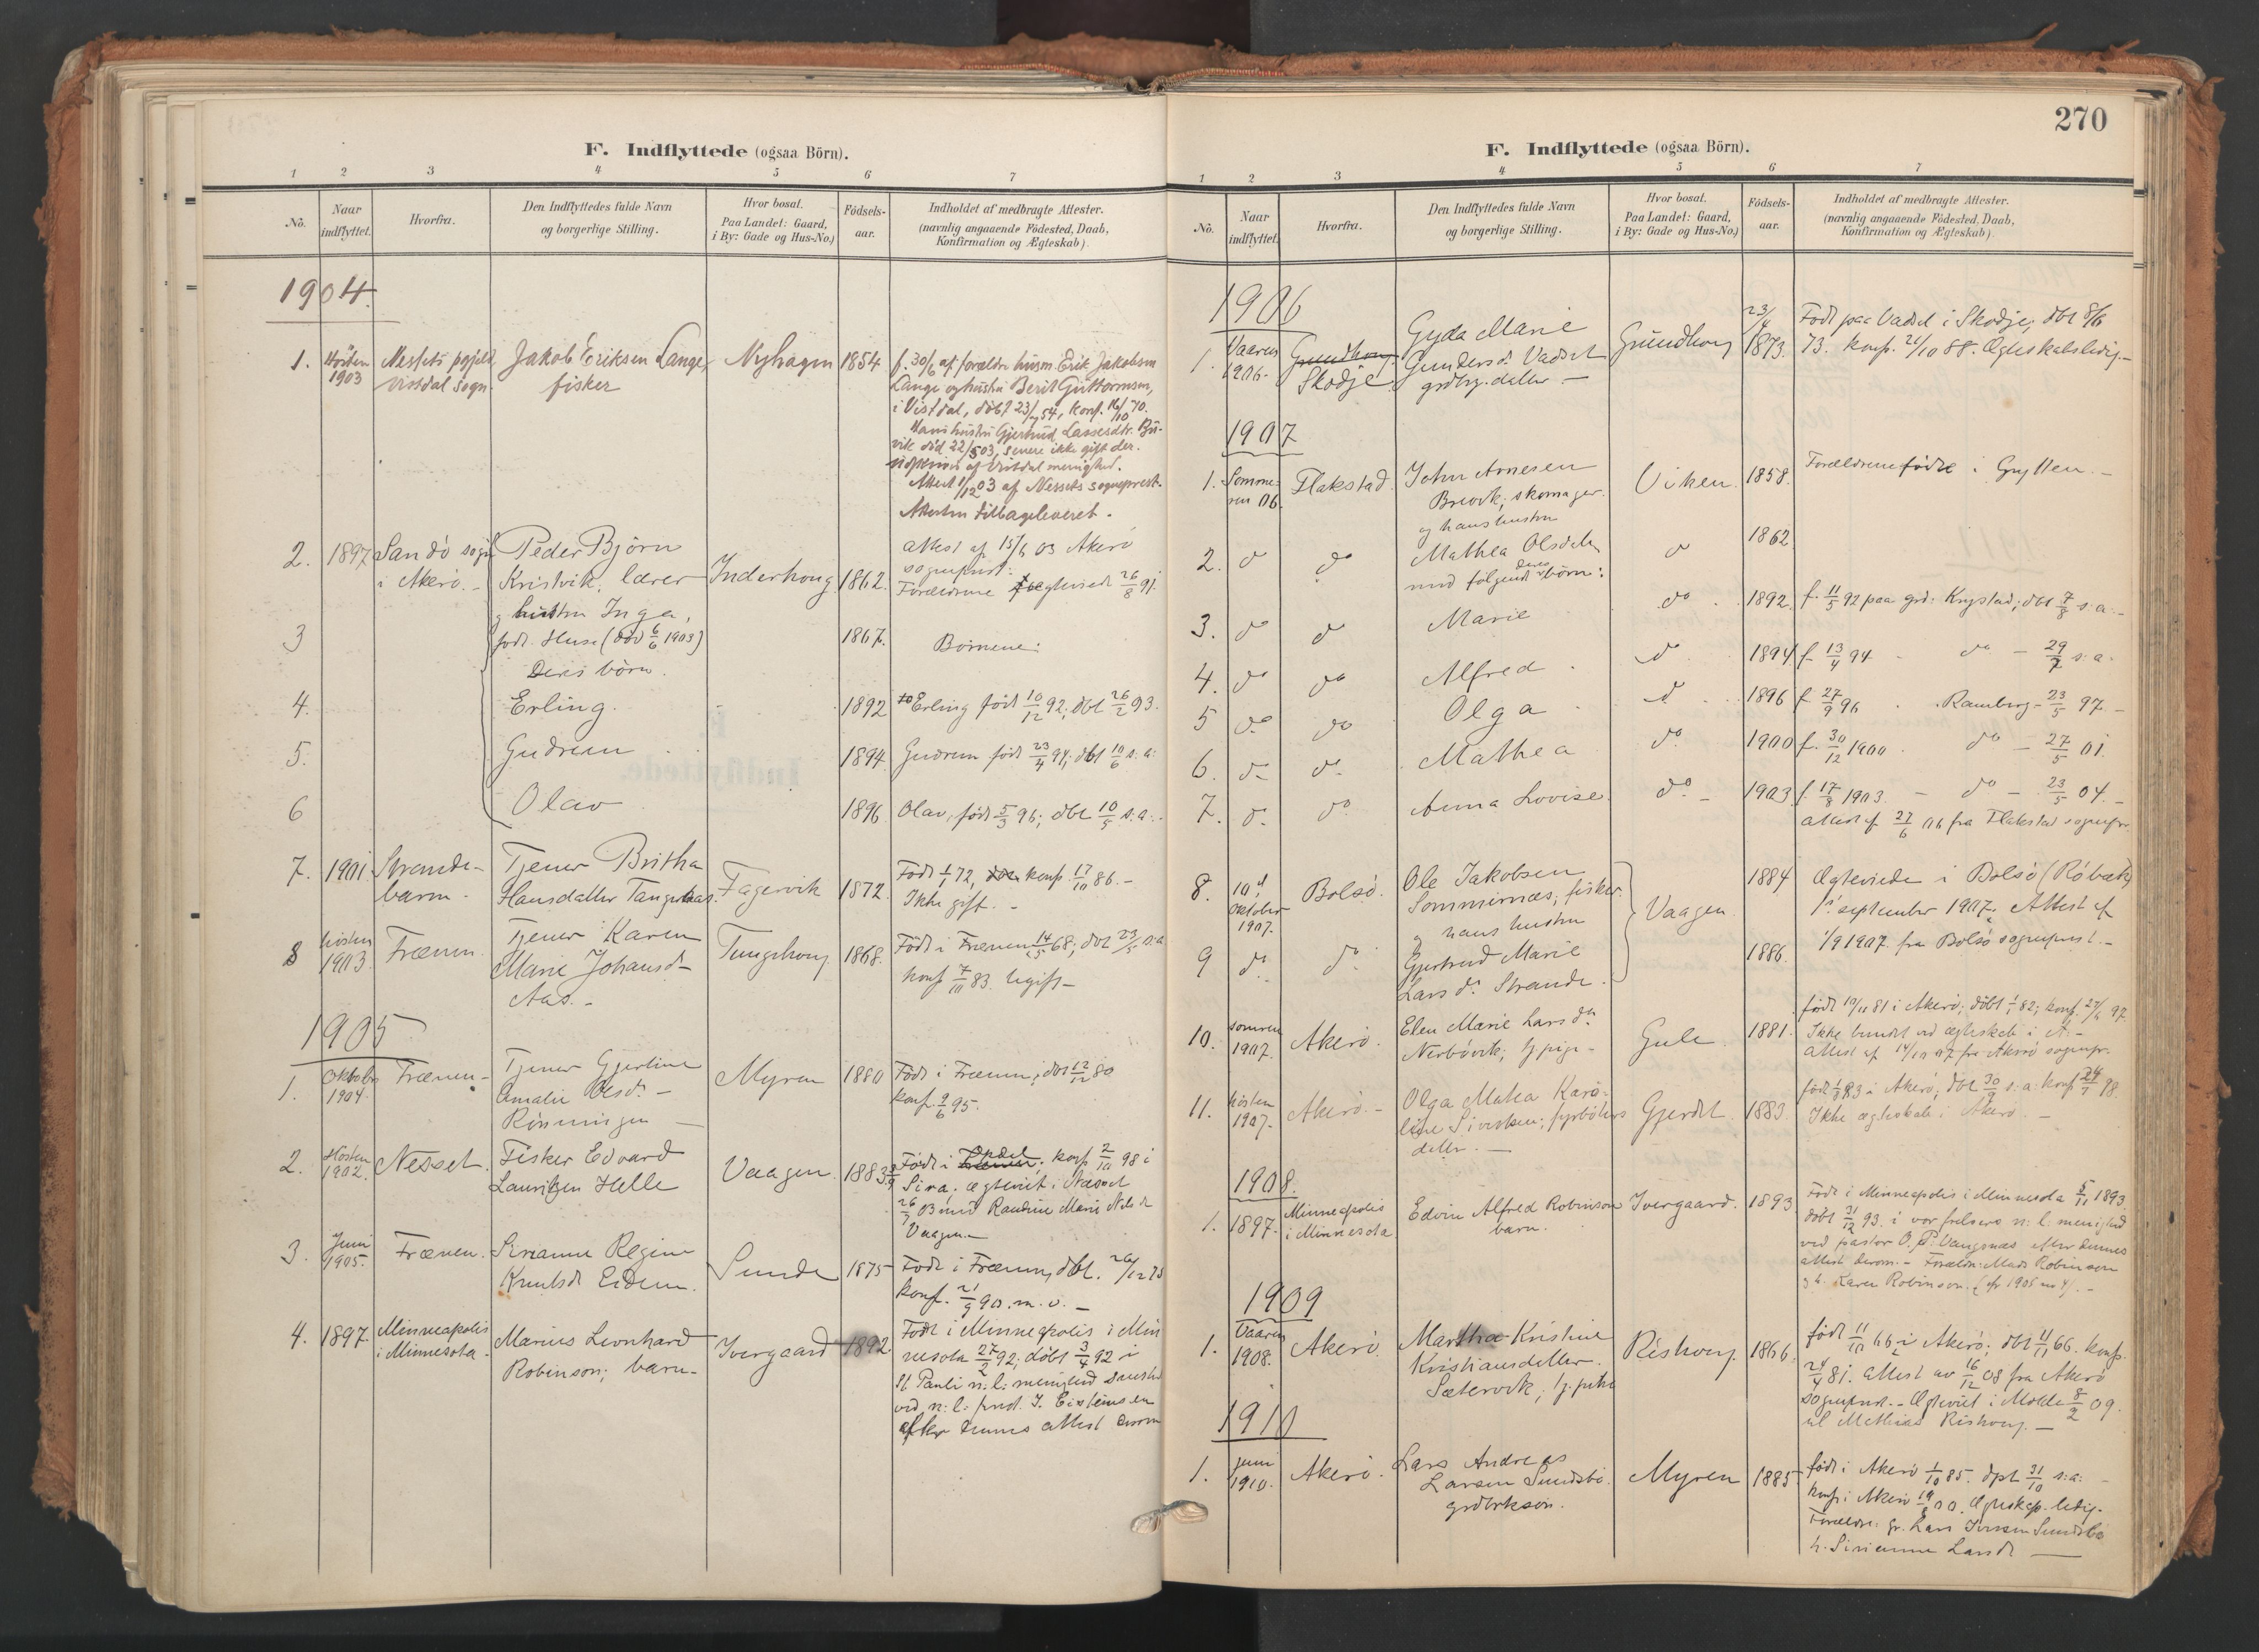 F. Indflyttede (ogsaa Börn).
1 2 3 4 5 6 7
No. Naar indflyttet. Hvorfra. Den Indflyttedes fulde Navn og borgerlige Stilling. Hvor bosat. Paa Landet: Gaard, i By: Gade og Hus-No.) Födsels-aar. Indholdet af medbragte Attester. (navnlig angaaende Födested, Daab, Konfirmation og Ægteskab)
1904.
1. Hösten 1903 Nessets pgjeld Vistdal sogn. Jakob Eriksen Lange, fisker Nyhagen 1854 f. 30/6 af forældre husm. Erik Jakobsen
Lange og hustru Berit Guttormsen,
i Vistdal, döbt 23/7 54, konf. 16/10 70.
Hans hustru Gjertrud Lassesdtr.
död 22/5 03, senere ikke gift der.
af Vistdal menighed.
Attest 1/12 03 af Nessets sogneprest.
Attesten tilbageleveret.
2. 1897 Sandö sogn i Akerö. Peder Björn Kristvik, lærer Inderhoug 1862. Attest af 15/6 03 Akerö
sogneprest:
Forældrene ægteviede 26/8 91.
3 og hustru Inga, född. Huse (död 6/6 1903) 1867. Börnene:
Deres börn.
4. Erling. 1892 Erling född 10/12 92; döbt 26/2 93.
5. Gudrun 1894 Gudrun född 23/4 94; döbt 10/6 s.a.
6 Olav 1896 Olav, född 5/3 96; dbt 10/5 s.a.
7. 1901 Strande-barm. Tjener Britha Hansdatter Tangeraas. Fagervik 1872. Född 1/1 72, konf. 17/10 86.
Ikke gift.
8 hösten 1903 Frænen. Tjener Karen Marie Johansd. Aas. Tungehoug 1868. Född i Frænen 14/5 68; dbt 23/5 s.a.
konf 7/10 83. Ugift
1905
1. Oktober 1904. Frænen Tjener Gjertine Amalie Olsd. Rönningen Myren 1880 Född i Frænen; dbt 12/12 80
konf. 9/6 95.
2. Hösten 1902. Nesset. Fisker Edvard Lauritzen Helle Vaagen. 1883 Född i konf 2/10 98 i
Sira; ægteviet i Næsset
26/7 03 med Raudine Marie Nilsd.
Vaagen.
3. Juni 1905. Frænen. Sirianne Regine Knutsd. Eidem. Sunde 1875 Född i Frænen, dbt. 26/12 75
konf. 21/9 90. m.v.
4. 1897. Minneapolis i Minnesota. Marius Leonhard Robinson; barn. Ivergaard 1892. Född i Minneapolis i Min
nesota 27/2 92; döbt 3/4 92 i
St Pauli n:l: menighed sammesteds
ved n:l: prest. J. Eisteinsen
efter dennes attest derom
270
F. Indflyttede (ogsaa Börn).
1 2 3 4 5 6 7
No. Naar indflyttet. Hvorfra. Den Indflyttedes fulde Navn og borgerlige Stilling. Hvor bosat. Paa Landet: Gaard, i By: Gade og Hus-No.) Födsels-aar. Indholdet af medbragte Attester. (navnlig angaaende Födested, Daab, Konfirmation og Ægteskab)
1906
1. Vaaren 1906. Grundhoug Skodje. Gyda Marie Gundersd. Vadset grdbr. datter Grundhoug 23/4 1873. Född paa Vadset i Skodje, dbt 8/6
73. konf. 21/10 88. Ægteskabsledig.
1907
1. Sommeren 06. Flakstad. John Arnesen Breivik; skomager. og hans hustru Viken 1858. Forældrene födte i Grytten.
2. do do Mathea Olsdatter med fölgende deres börn: do 1862
3. do do Marie do 1892. f. 11/5 92 paa grd. Krystad; dbt 7/8 s.a.
4. do do Alfred do 1894 f. 13/4 94 do 29/7 s.a.
5 do do Olga do 1896 f 27/9 96 Ramberg 23/5 97.
6. do do Mathea do 1900 f. 30/12 1900 do 27/5 01.
7. do do Anna Lovise. do 1903 f. 17/8 1903. do 23/5 04.
Attest af 27/6 06 fra Flakstad sognepr.
8. 10d Oktober 1907. Bolsö. Ole Jakobsen Sommernæs, fisker. og hans hustru Vaagen. 1884 Ægteviede i Bolsö (Röbæk)
1. september 1907. Attest af
1/9 1907 fra Bolsö sogneprest.
9 do do Gjertrud Marie Lars d. Strande. 1886.
10. somren 1907. Akerö. Elen Marie Lars dtr Nerbövik; tj.pige Gule. 1881. född 19/11 81 i Akerö; döbt 1/1 82; konf. 27/6 97.
Ikke bundet ved ægteskab i A.
Attest af 14/10 07 fra Akerö sognepr.
11. hösten 1907. Akerö. Olga Matea Karoline Sivertsen; fyrböters datter. Gjerdet. 1883. född 1/8 83 i Akerö; dbt 30/9 s.a. konf 24/7 98.
Ikke ægteskab i Akerö.
1908.
1. 1897. Minneapolis i Minnesota Edvin Alfred Robinson barn. Ivergaard. 1893. Född i Minneapolis i Minnesota 5/11 1893
döbt 31/12 93. i vor frelsers n:l: menighed
ved pastor O. P. Vangsnæs efter dennes
attest derom. Forældr. Mads Robinson
og h. Karen Robinson. (cfr 1905 no 4).
1909
1. Vaaren 1908. Akerö. Martha Kristine Kristiansdatter Sætervik, tj.pike Rishoug. 1866. född 11/10 66 i Akerö; dbt 11/11 66. konf.
24/4 81. Attest av 16/12 08 fra Akerö
sogneprest. Ægteviet i Molde 8/2 09.
til Mathias Rishoug.
1910
1. juni 1910. Akerö. Lars Andreas Larsen Sundsbö. grdbrksön. Myren 1885 född i Akerö 1/10 85. dpt 31/10 s.a.
konf. i Akerö 19/8 00. Ægteskap. ledig.
Forældre: gr. Lars Iversen Sundsbö
h. Sirianna Larsd.